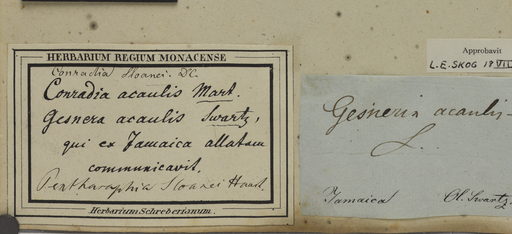 HERBARIUM REGIUM MONACENSE
Conradia Sloanei. DC.
Conradia acaulis Mart.
Gesnera acaulis Swartz,
qui ex Jamaica allatam
communicavit.
Pentharaphia Sloanei Hanst.
Herbarium Schreberianum.
Approbavit
L.E. SKOG 18 VII
Gesneria acaulis
L.
Jamaica Ol. Swartz.